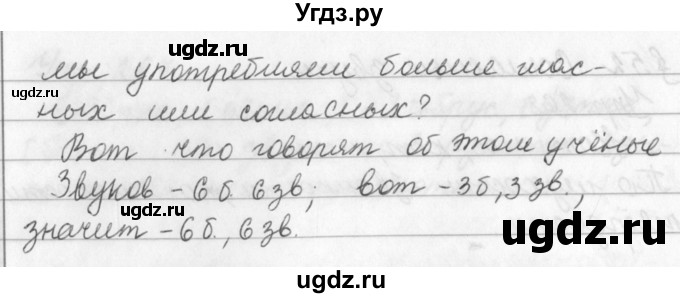 Угдз.ру
мы употребляем больше глас-
ных или согласных?
Вот что говорят об этом учёные
Звуков - 6 б. 6 зв; вот - 3 б, 3 зв.,
значит - 6 б., 6 зв.
ugdz.ru
ugdz.ru
ugdz.ru
ugdz.ru
ugdz.ru
ugdz.ru